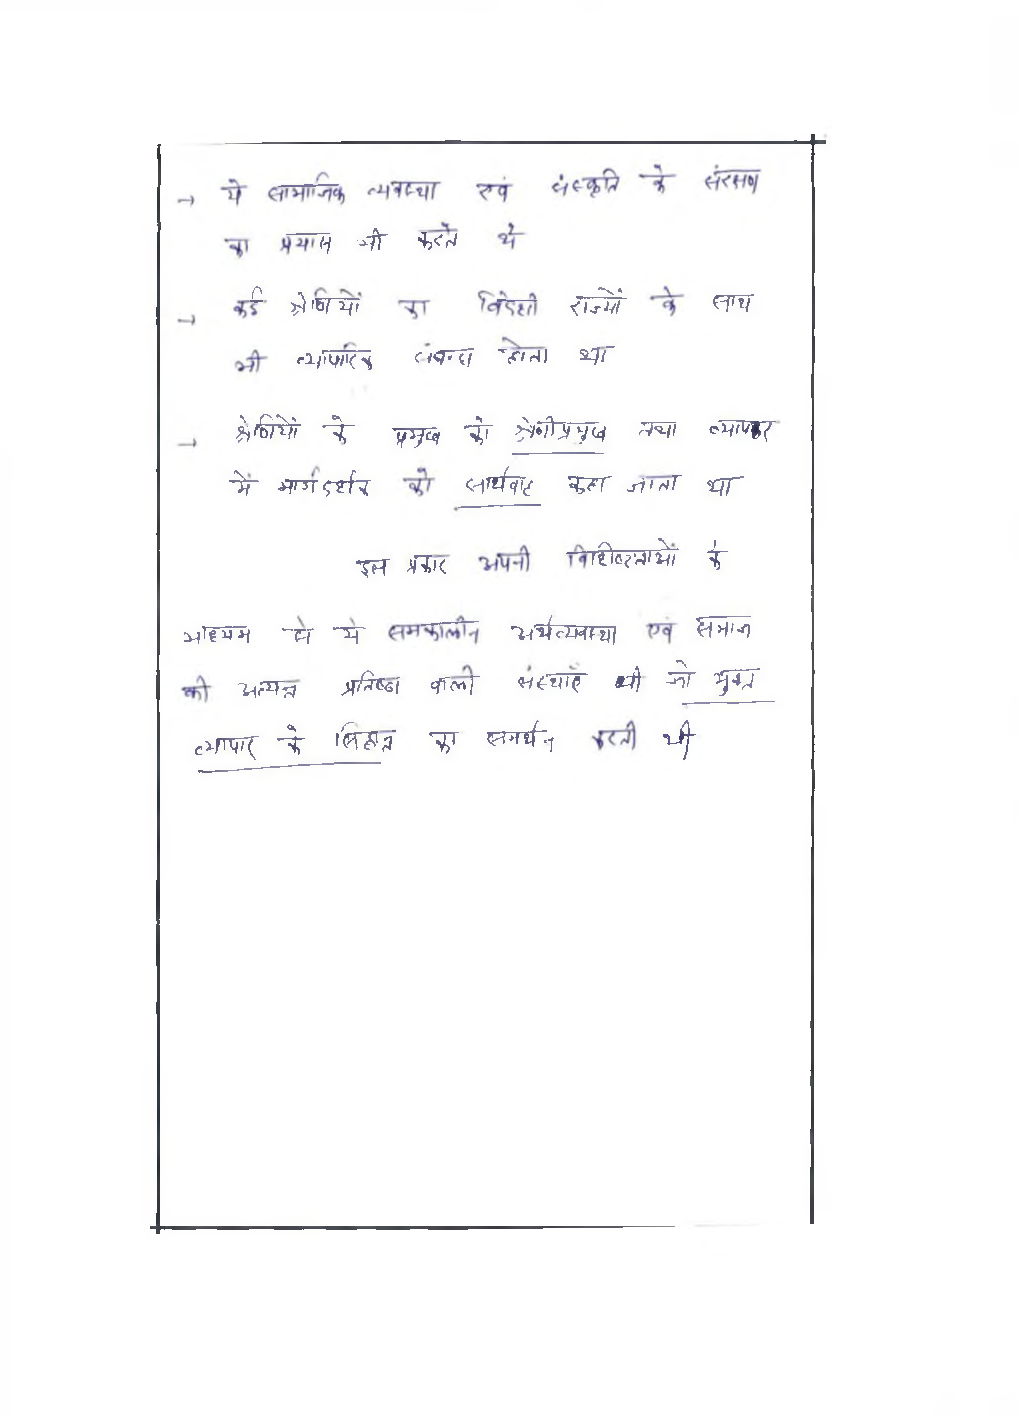 → ये सामाजिक व्यवस्था एवं संस्कृति के संरक्षण
का प्रयास भी करते थे
→ कई श्रेणियों का विदेशी राज्यों के साथ
भी व्यापारिक संबन्ध होता था
→ श्रेणियों के प्रमुख को श्रेणीप्रमुख तथा व्यापार
में मार्गदर्शक को सार्थवाह कहा जाता था
इस प्रकार अपनी विशेषताओं के
माध्यम से ये समकालीन अर्थव्यवस्था एवं समाज
की अत्यन्त प्रतिष्ठा वाली संस्थाएँ थी जो मुक्त
व्यापार के सिद्धान्त का समर्थन करती थी